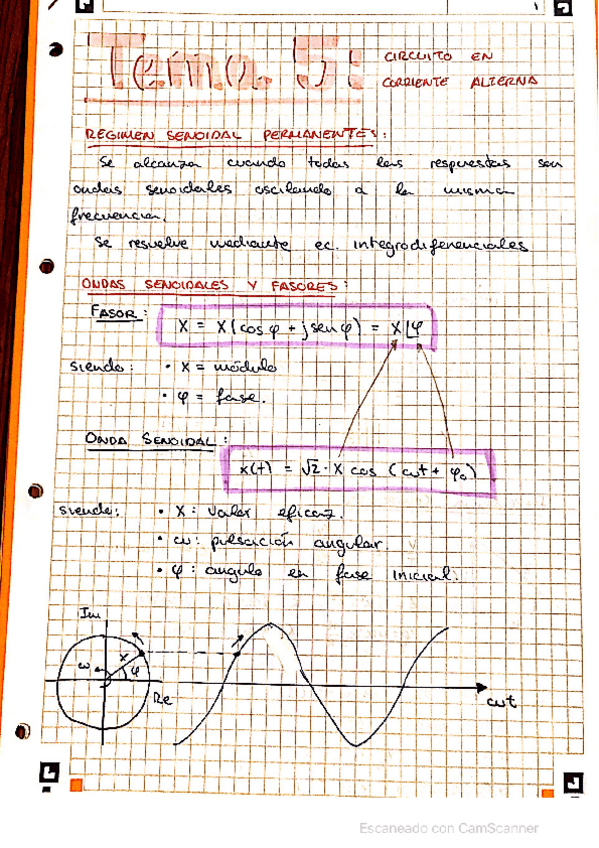 Tema. 5: CIRCUITO EN
CORRIENTE ALTERNA
REGIMEN SENOIDAL PERMANENTES:
Se alcanza cuando todas las respuestas son
ondas senoidales oscilando a la misma
frecuencia.
Se resuelve mediante ec. integrodiferenciales
ONDAS SENOIDALES Y FASORES:
FASOR: X = X(cos φ + j sen φ) = X⌊φ
siendo: • X = módulo
• φ = fase.
ONDA SENOIDAL:
x(t) = √2 · X cos (ωt + φ₀)
siendo: • X: valor eficaz.
• ω: pulsación angular.
• φ: angulo en fase inicial.
Im
X
ω
φ
Re
ωt
Escaneado con CamScanner